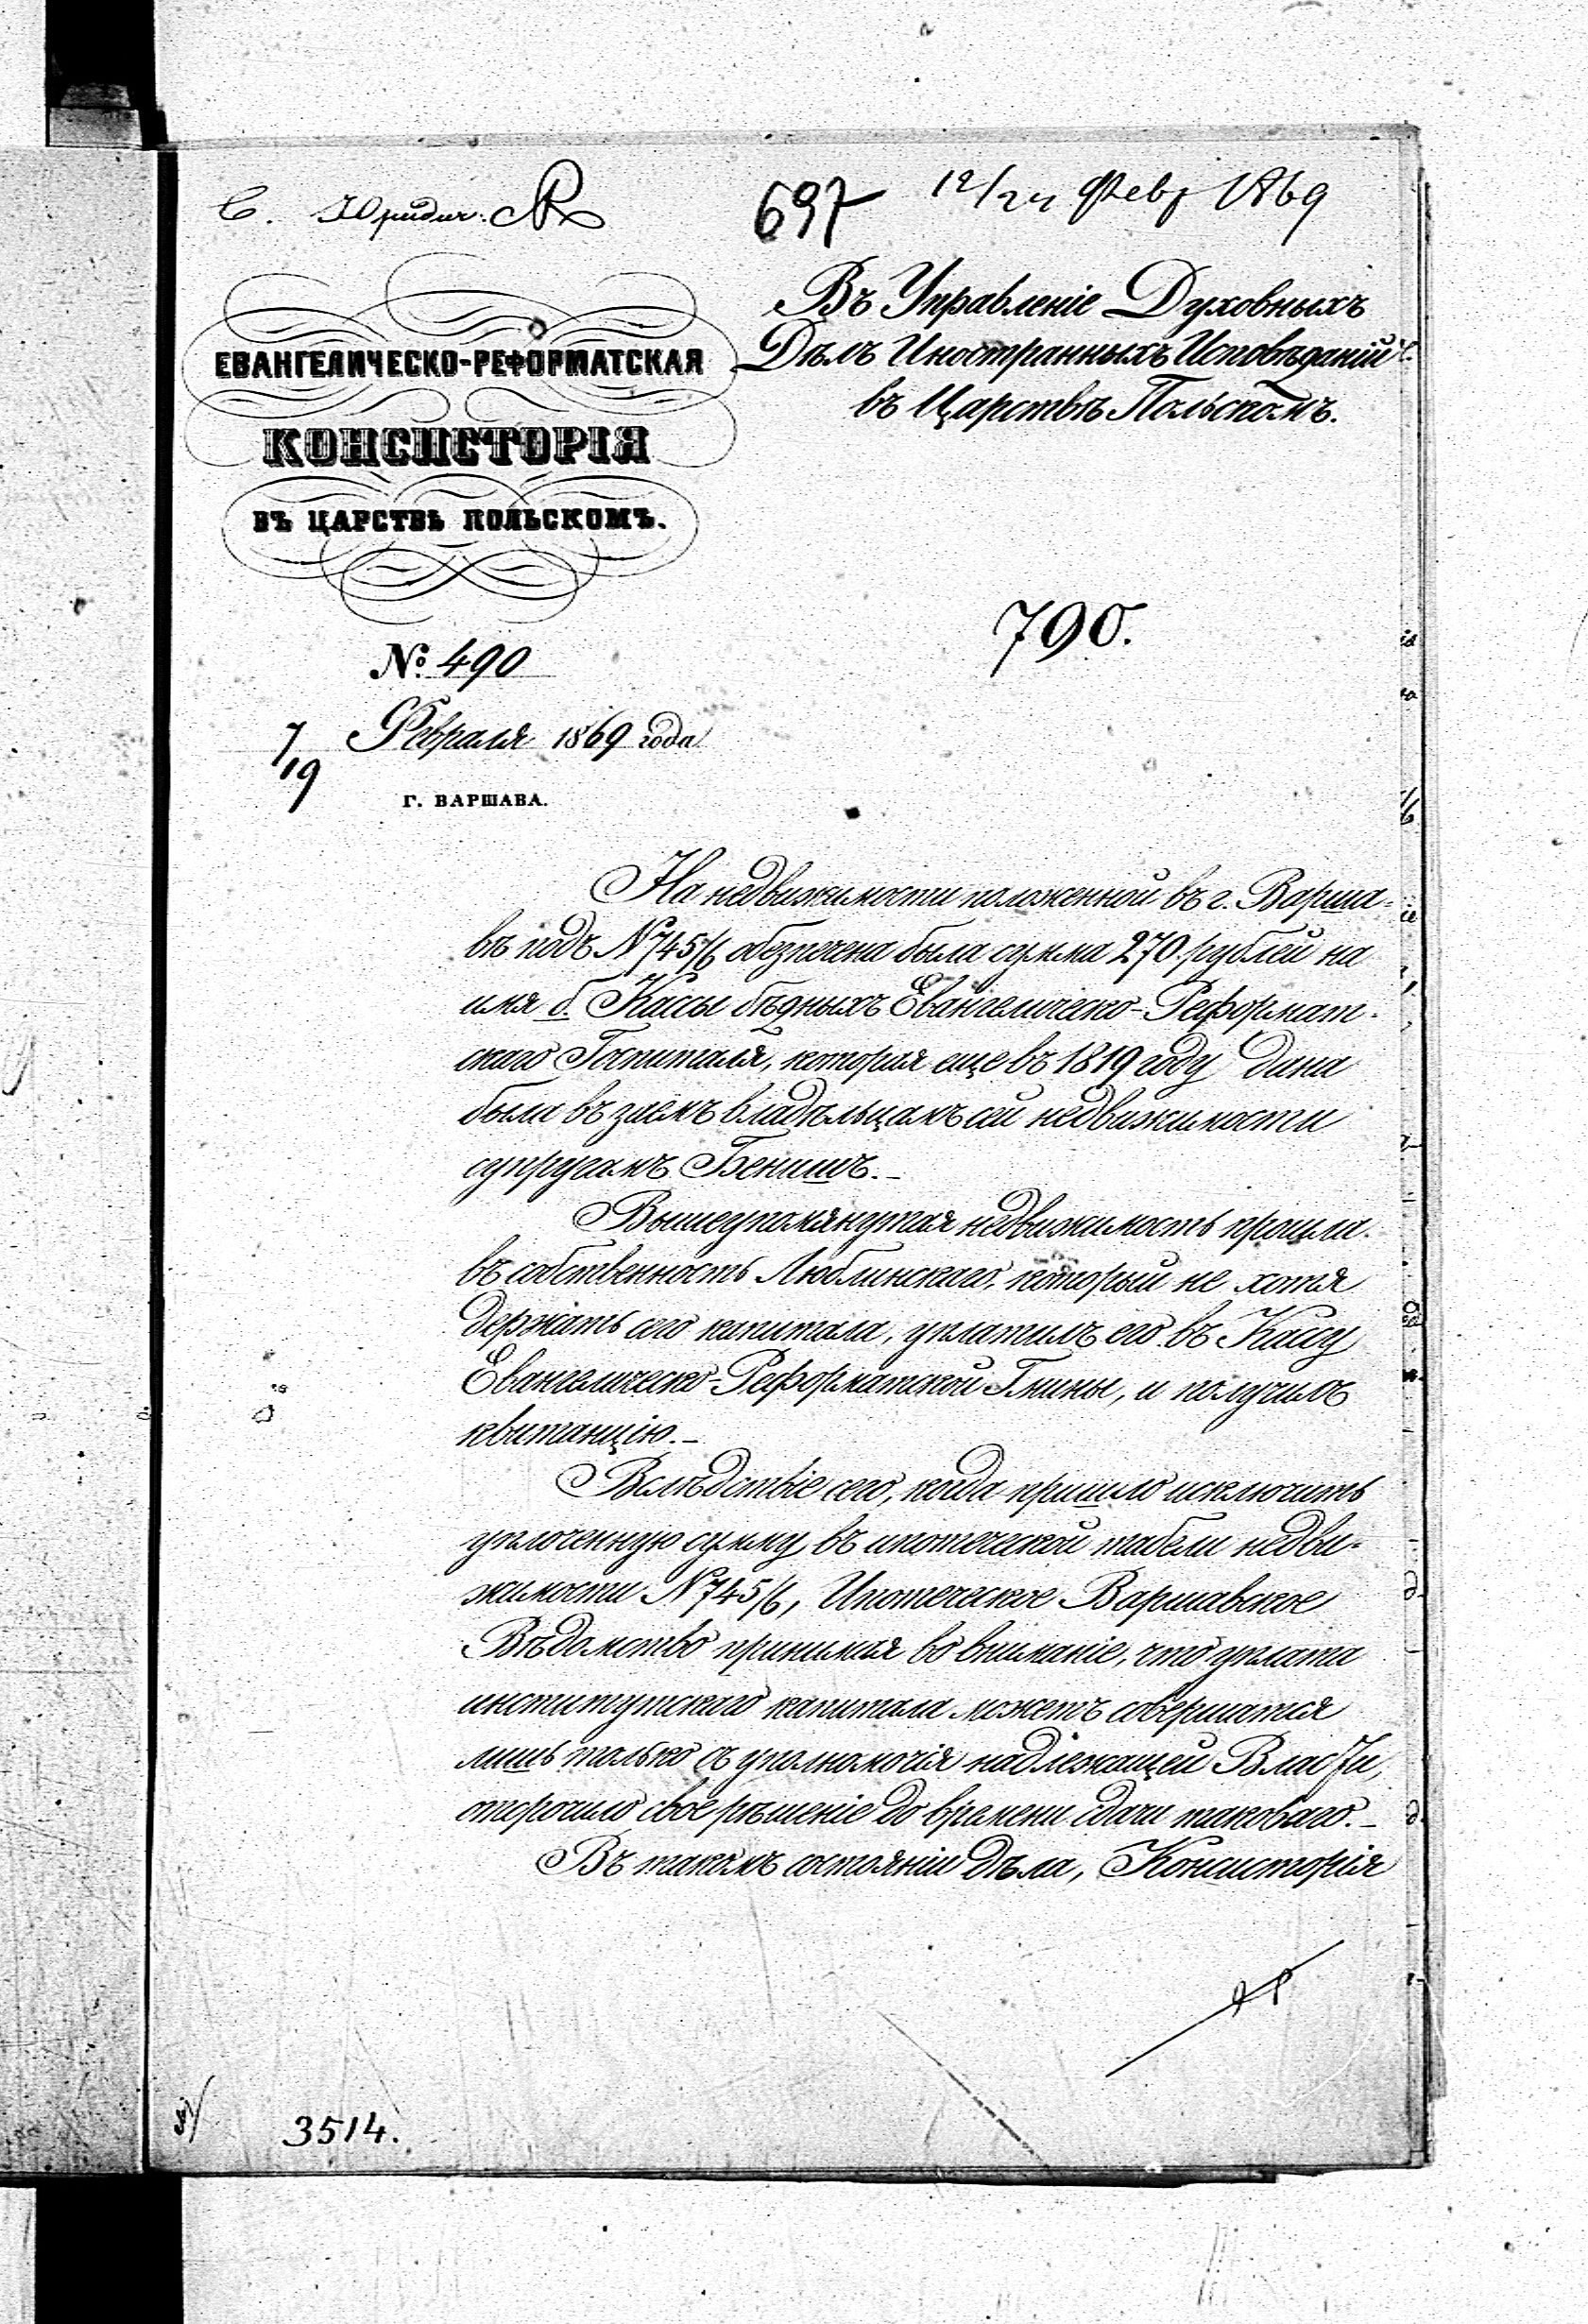 С. Юридич.
697 12/24 Февр 1869
Въ Управленіе Духовныхъ
Дѣлъ Иностранныхъ Исповѣданій
въ Царствѣ Польскомъ.
ЕВАНГЕЛИЧЕСКО-РЕФОРМАТСКАЯ
КОНСИСТОРІЯ
ВЪ ЦАРСТВѢ ПОЛЬСКОМЪ.
790.
№ 490
7/19 Февраля 1869 года
Г. ВАРШАВА.
На недвижимости положенной въ г. Варша-
вѣ подъ № 745/6 обезпечена была сумма 270 рублей на
имя б. Кассы бѣдныхъ Евангелическо-Реформат-
скаго Госпиталя, которая еще въ 1819 году дана
была въ заемъ владѣльцамъ сей недвижимости
супругамъ Бенишъ.-
Вышеупомянутая недвижимость прошла
въ собственность Люблинскаго, который не хотя
держать сего капитала, уплатилъ его въ Кассу
Евангелическо-Реформатской Гмины, и получилъ
квитанцію.-
Вслѣдствіе сего, когда пришло исключить
уплоченную сумму въ ипотеческой табели недви-
жимости № 745/6, Ипотеческое Варшавское
Вѣдомство принимая во вниманіе, что уплата
институтскаго капитала можетъ совершатся
лишь только съ уполномочія надлежащей Власти,
отсрочило свое рѣшеніе до времени сдачи таковаго.-
Въ такомъ состояніи дѣла, Консисторія
3514.